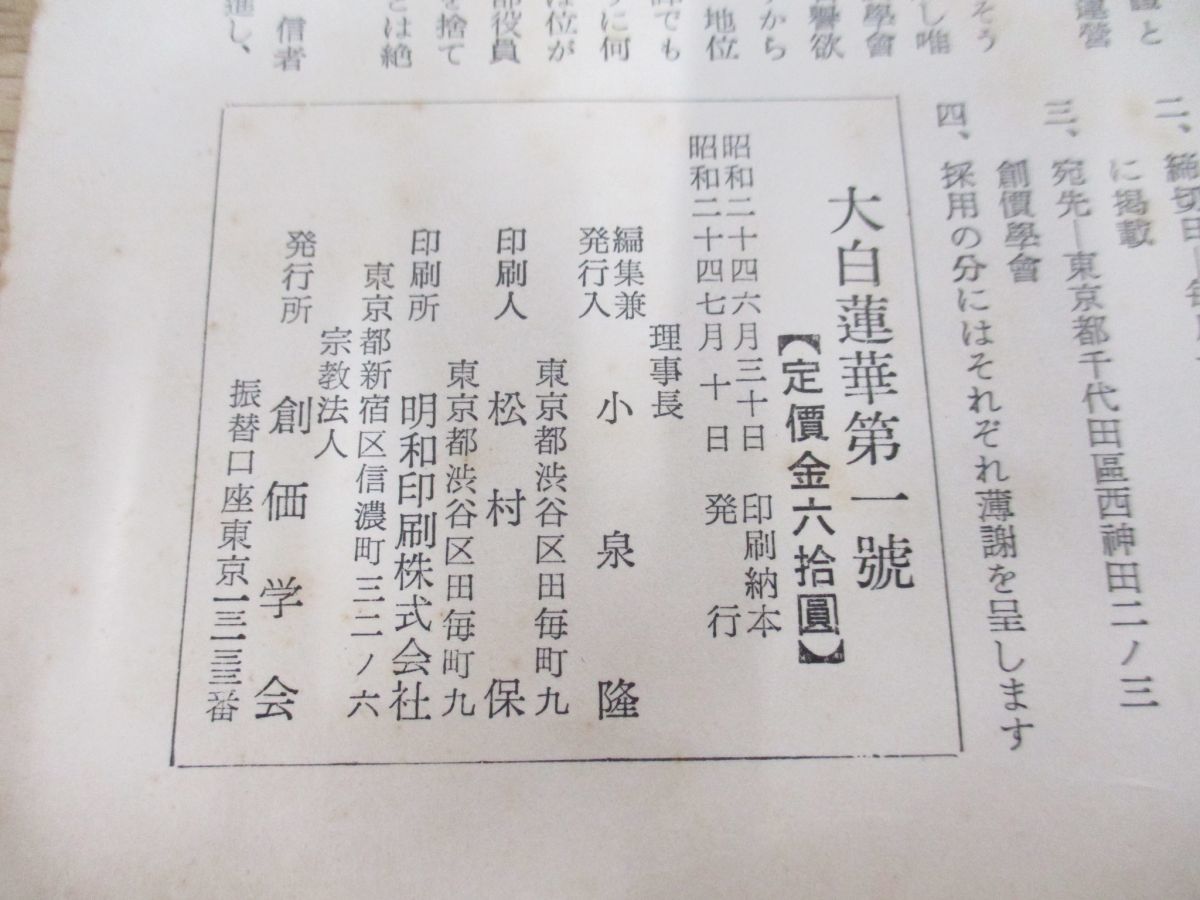 二、締切日―毎
に掲載
三、宛先―東京都千代田區西神田二ノ三
創價學會
四、採用の分にはそれぞれ薄謝を呈します
と
運営
そう
し唯
學會
譽欲
から
地位
でも
に何
は位が
部役員
を捨て
とは絶
信者
進し、
大白蓮華第一號
【定價金六拾圓】
昭和二十四六月三十日 印刷納本
昭和二十四七月十日 発行
理事長
編集兼
発行入 小泉隆
東京都渋谷区田毎町九
印刷人 松村保
東京都渋谷区田毎町九
印刷所 明和印刷株式会社
東京都新宿区信濃町三二ノ六
宗教法人
発行所 創価学会
振替口座東京一三一三三番